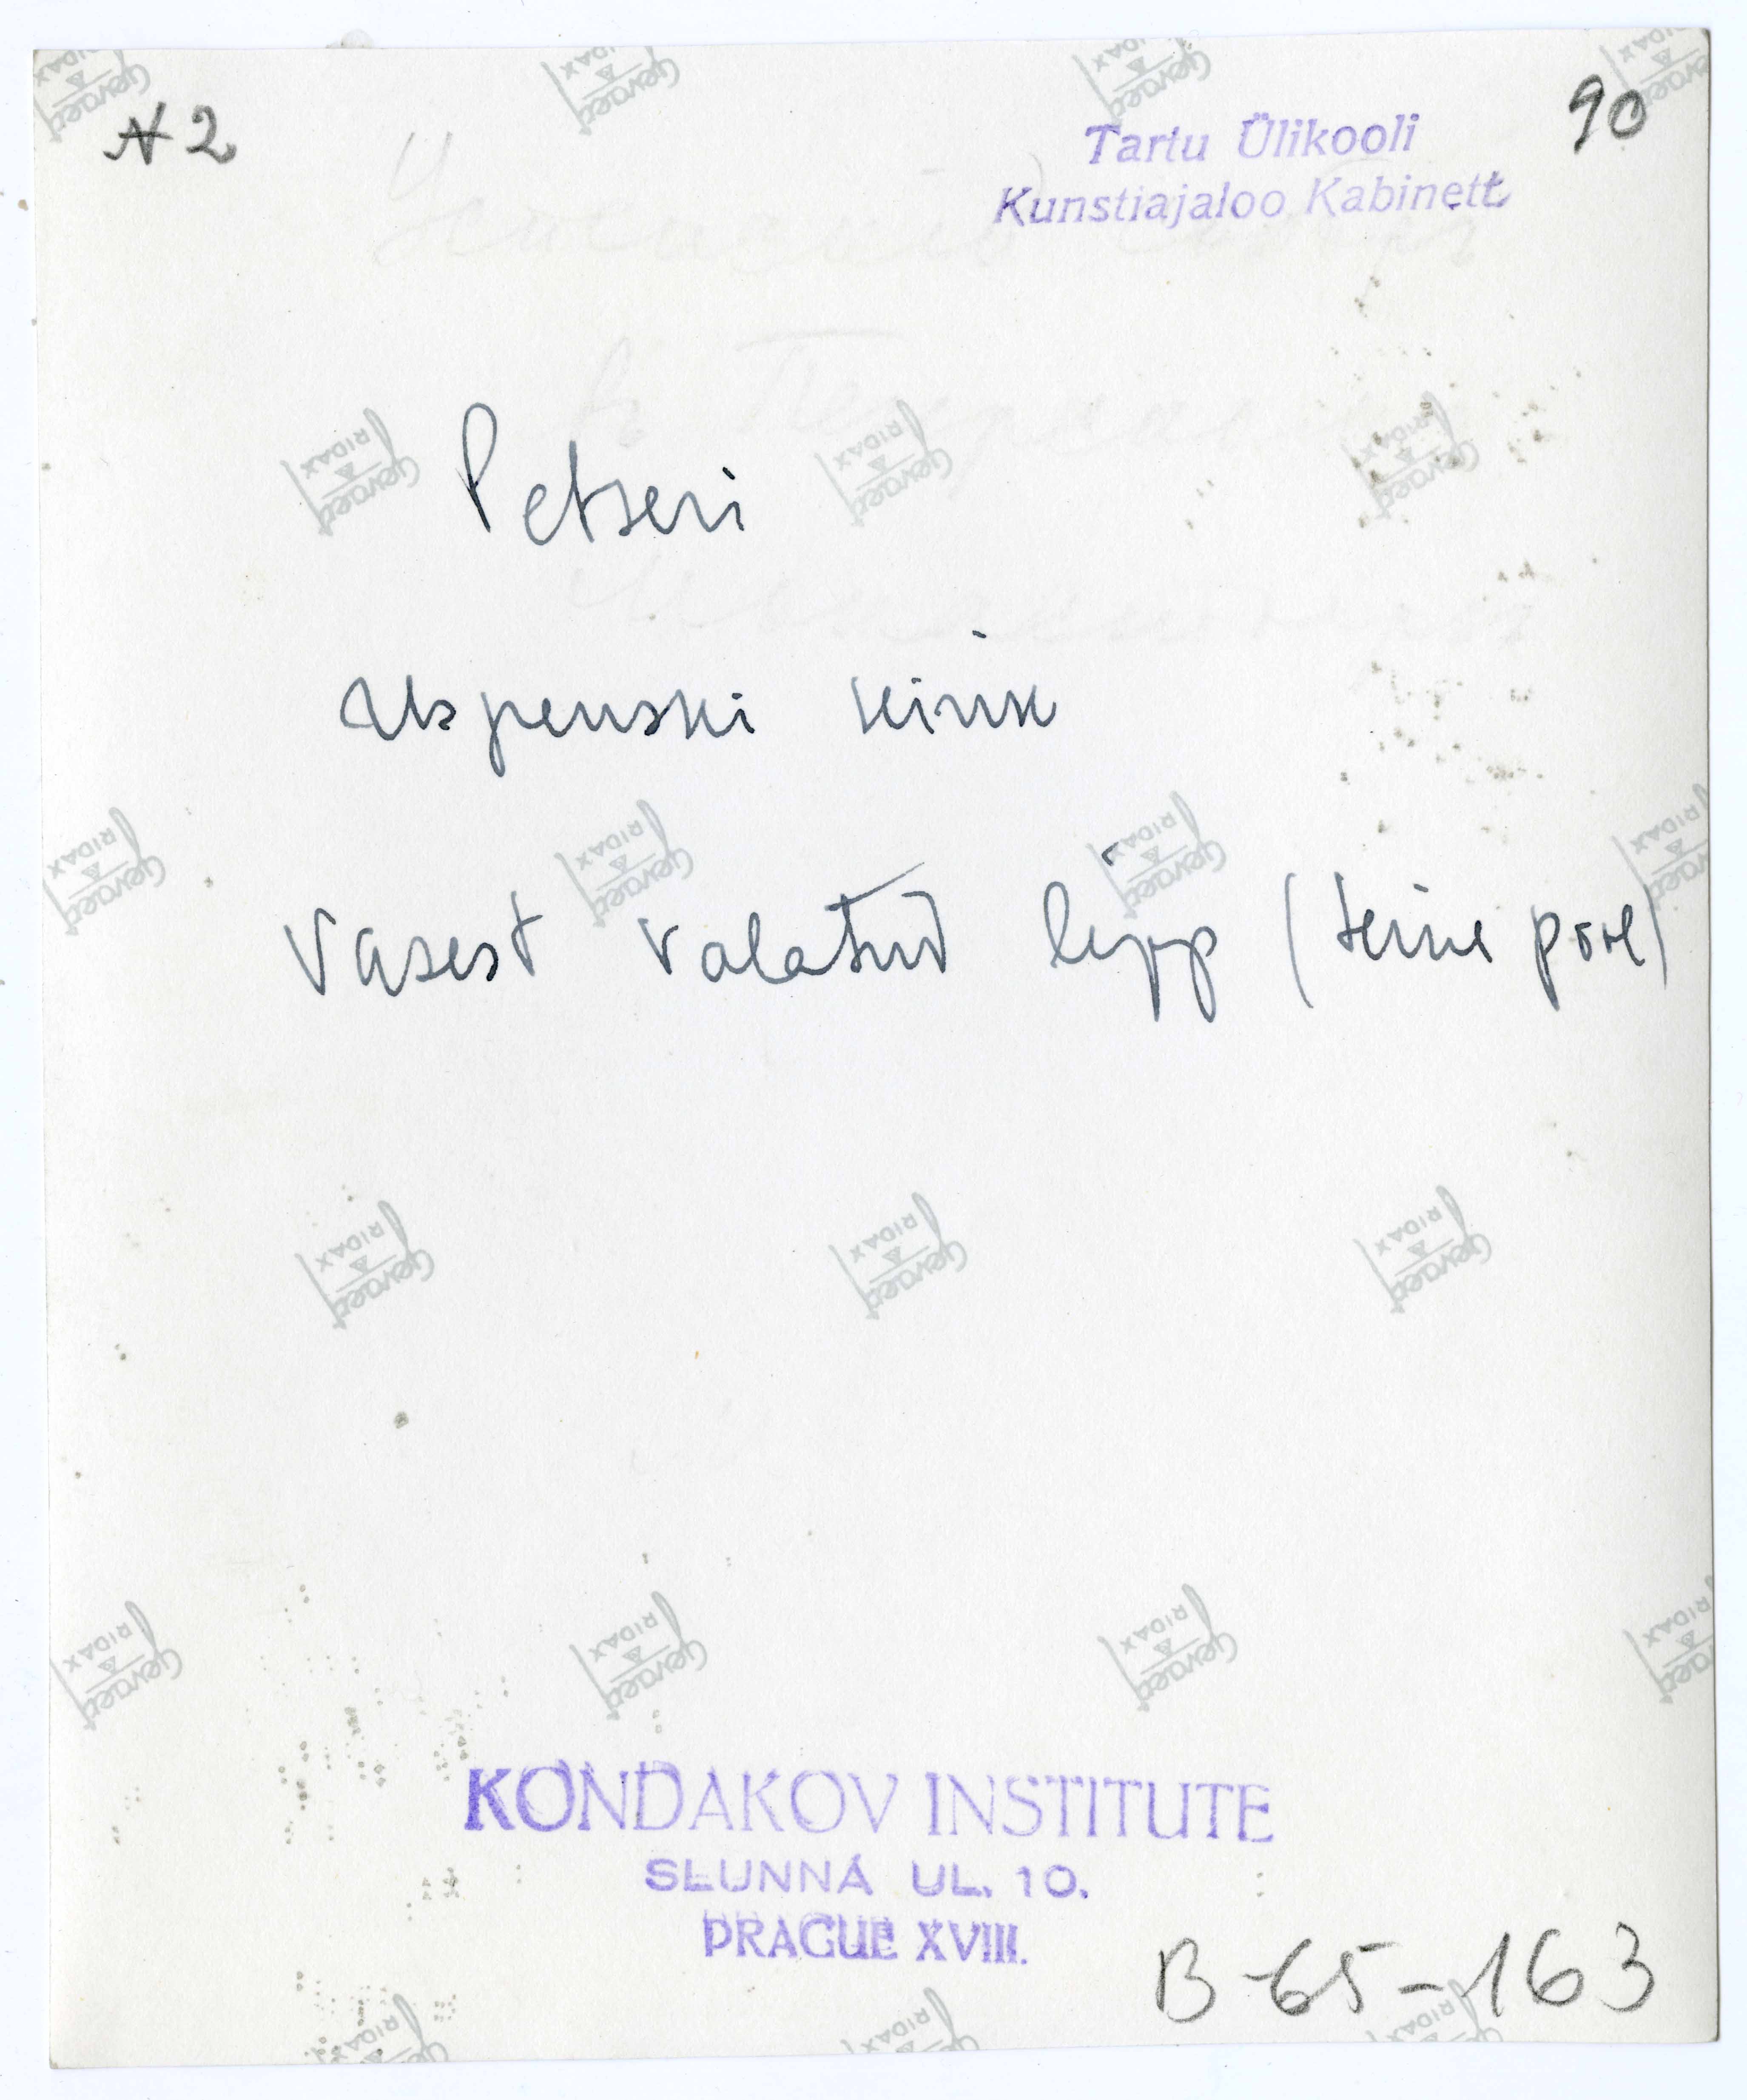 N 2
90
Tartu Ülikooli
Kunstiajaloo Kabinett
Petseri
Uspenski kirik
Vasest valatud lipp (teine pool)
KONDAKOV INSTITUTE
SLUNNÁ UL. 10.
PRAGUE XVIII.
B-65-163
Gevaert
RIDAX